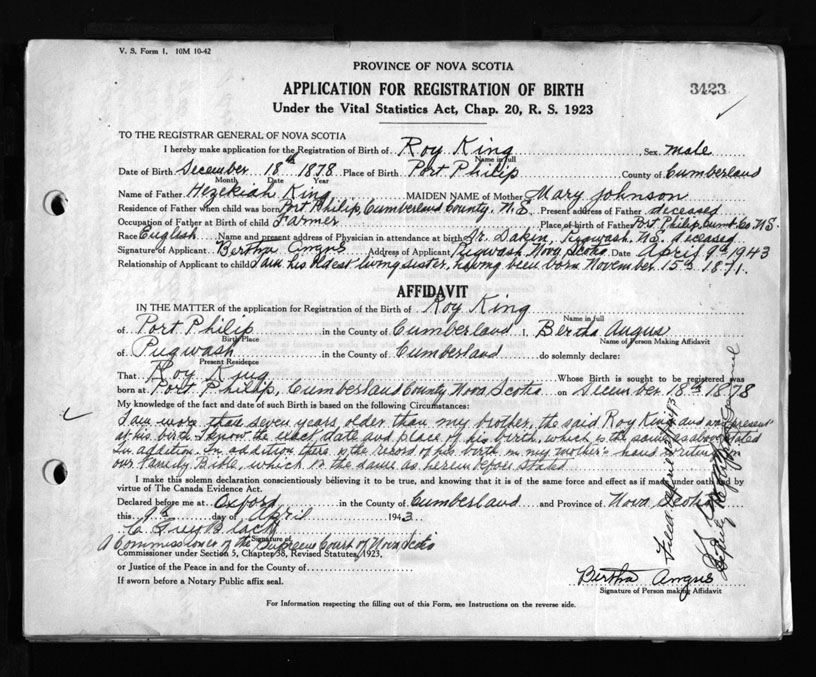 V. S. Form 1. 10M 10-42
PROVINCE OF NOVA SCOTIA
APPLICATION FOR REGISTRATION OF BIRTH
3423
Under the Vital Statistics Act, Chap. 20, R. S. 1923
TO THE REGISTRAR GENERAL OF NOVA SCOTIA
I hereby make application for the Registration of Birth of Roy King Sex male
Name in full
Date of Birth December 18th 1878 Place of Birth Port Philip County of Cumberland
Month Date Year
Name of Father Hezekiah King MAIDEN NAME of Mother Mary Johnson
Residence of Father when child was born Port Philip, Cumberland County, N.S. Present address of Father deceased
Occupation of Father at Birth of child Farmer Place of birth of Father Port Philip, Cumb. Co. N.S.
Race English Name and present address of Physician in attendance at birth Dr. Dakin, Pugwash, N.S. deceased
Signature of Applicant Bertha Angus Address of Applicant Pugwash Nova Scotia Date April 9th 1943
Relationship of Applicant to child I am his oldest living sister, having been born November 15th 1871.
AFFIDAVIT
IN THE MATTER of the application for Registration of the Birth of Roy King
Name in full
of Port Philip in the County of Cumberland I, Bertha Angus
Birth Place Name of Person Making Affidavit
of Pugwash in the County of Cumberland do solemnly declare:
Present Residence
That Roy King Whose Birth is sought to be registered was
born at Port Philip, Cumberland County Nova Scotia on December 18th 1878
My knowledge of the fact and date of such Birth is based on the following Circumstances:
I am more than seven years older than my brother, the said Roy King and was present
at his birth. I know the exact date and place of his birth, which is the same as above stated
In addition. In addition there is the record of his birth in my mother's hand writing in
our Family Bible, which is the same as hereinbefore stated
I make this solemn declaration conscientiously believing it to be true, and knowing that it is of the same force and effect as if made under oath and by
virtue of The Canada Evidence Act.
Declared before me at Oxford in the County of Cumberland and Province of Nova Scotia
this 9th day of April 1943
Grey Black
Signature of
A Commissioner of the Supreme Court of Nova Scotia
Commissioner under Section 5, Chapter 38, Revised Statutes, 1923,
or Justice of the Peace in and for the County of
If sworn before a Notary Public affix seal.
Bertha Angus
Signature of Person making Affidavit
For Information respecting the filling out of this Form, see Instructions on the reverse side.
Filed April